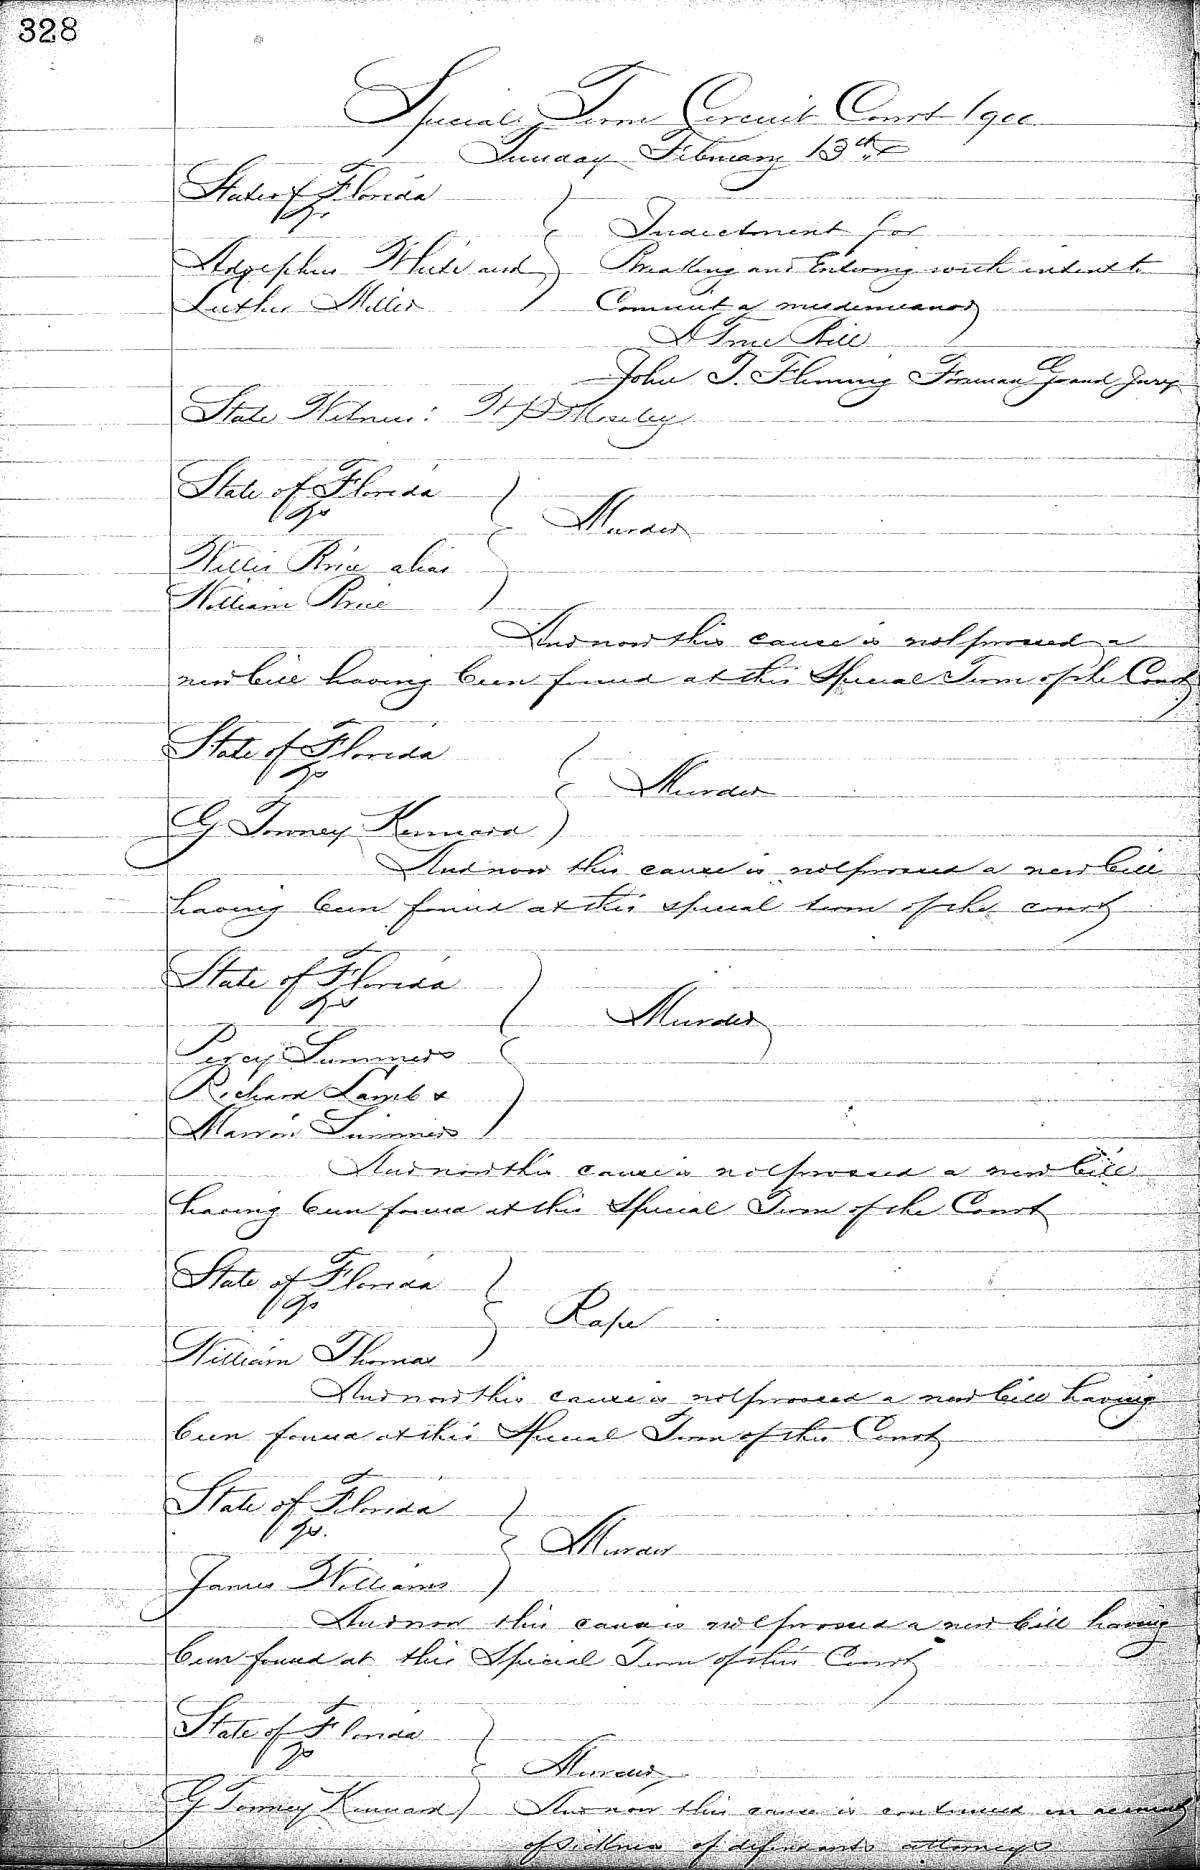 328
Special Term Circuit Court 1900
Tuesday February 13th
State of Florida
vs
White and
Indictment for
Breaking and Entering with intent to
Luther Miller
Commit a misdemeanor
A True Bill
John T. Fleming Foreman Grand Jury
State Witness: Moseley
State of Florida
vs
Murder
Willis Price alias
William Price
And now this cause is nolprossed a
new bill having been found at this Special Term of the Court
State of Florida
vs
Murder
G Tonney Kennard
And now this cause is nolprossed a new bill
having been found at this special term of the court
State of Florida
vs
Murder
Percy Summers
Richard Lamb &
Marion Summers
And now this cause is nolprossed a new bill
having been found at this Special Term of the Court
State of Florida
vs
Rape
William Thomas
And now this cause is nolprossed a new bill having
been found at this Special Term of this Court
State of Florida
vs.
Murder
James Williams
And now this cause is nolprossed a new bill having
been found at this Special Term of this Court
State of Florida
vs
Murder
G Tonney Kennard
And now this cause is continued on account
of sickness of defendants attorneys